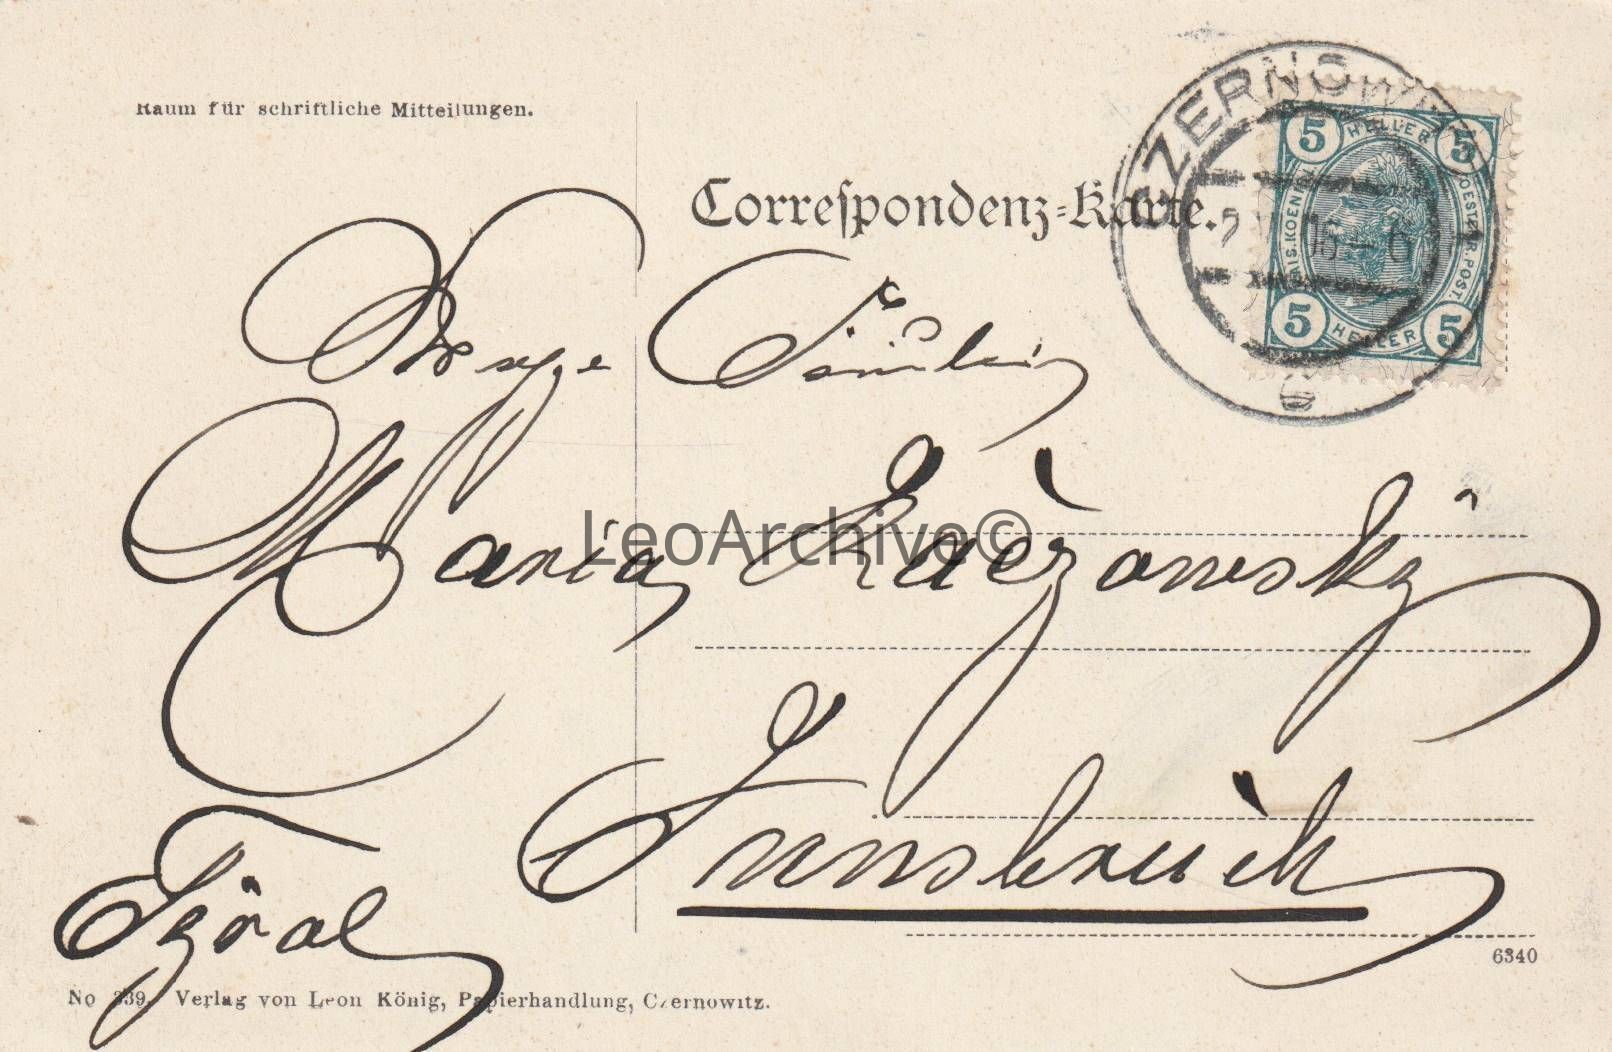 Raum für schriftliche Mitteilungen.
Correspondenz-Karte.
CZERNOWITZ
06-6
5 HELLER 5
KAIS. KOENIGL.
OESTERR. POST.
5 HELLER 5
Maria
LeoArchive©
Innsbruck
Tyrol
6340
No 339. Verlag von Leon König, Papierhandlung, Czernowitz.